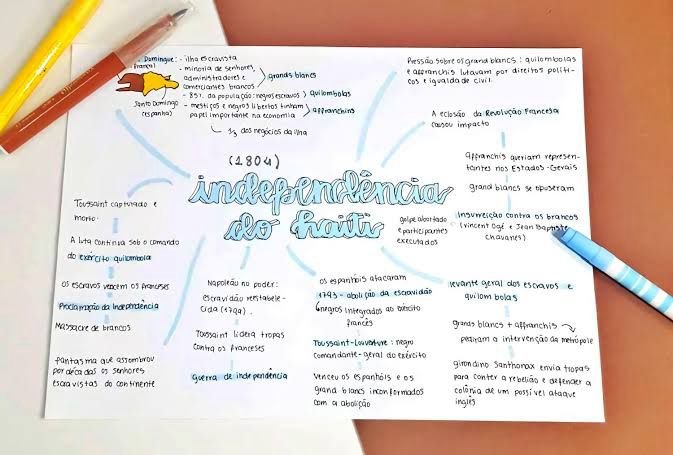 Domingue: - ilha escravista
(França)
- minoria de senhores,
administradores e
comerciantes brancos
grands blancs
- 85% da população: negros escravos
quilombolas
- mestiços e negros libertos tinham
papel importante na economia
affranchins
1/3 dos negócios da ilha
Santo Domingo
(espanha)
Pressão sobre os grand blancs: quilombolas
e affranchis lutavam por direitos políti-
cos e igualdade civil.
A eclosão da Revolução Francesa
causou impacto
affranchis queriam represen-
tantes nos Estados-Gerais
grand blancs se opuseram
Insurreição contra os brancos
(vincent Ogé e Jean Baptiste
chavanes)
golpe abortado
e participantes
executados
levante geral dos escravos e
quilombolas
grands blancs + affranchis
pediram a intervenção da metrópole
girondino Santhonax envia tropas
para conter a rebelião e defender a
colônia de um possível ataque
inglês
(1804)
independência
do haiti
os espanhóis atacaram
1793 - abolição da escravidão
negros integrados ao exército
francês
Toussaint-Louverture: negro
comandante-geral do exército
venceu os espanhóis e os
grand blancs inconformados
com a abolição
Napoleão no poder:
escravidão restabele-
cida (1799).
Toussaint lidera tropas
contra os franceses
guerra de independência
Toussaint capturado e
morto.
A luta continua sob o comando
do exército quilombola
os escravos vencem os franceses
Proclamação da Independência
Massacre de brancos
fantasma que assombrou
por décadas os senhores
escravistas do continente